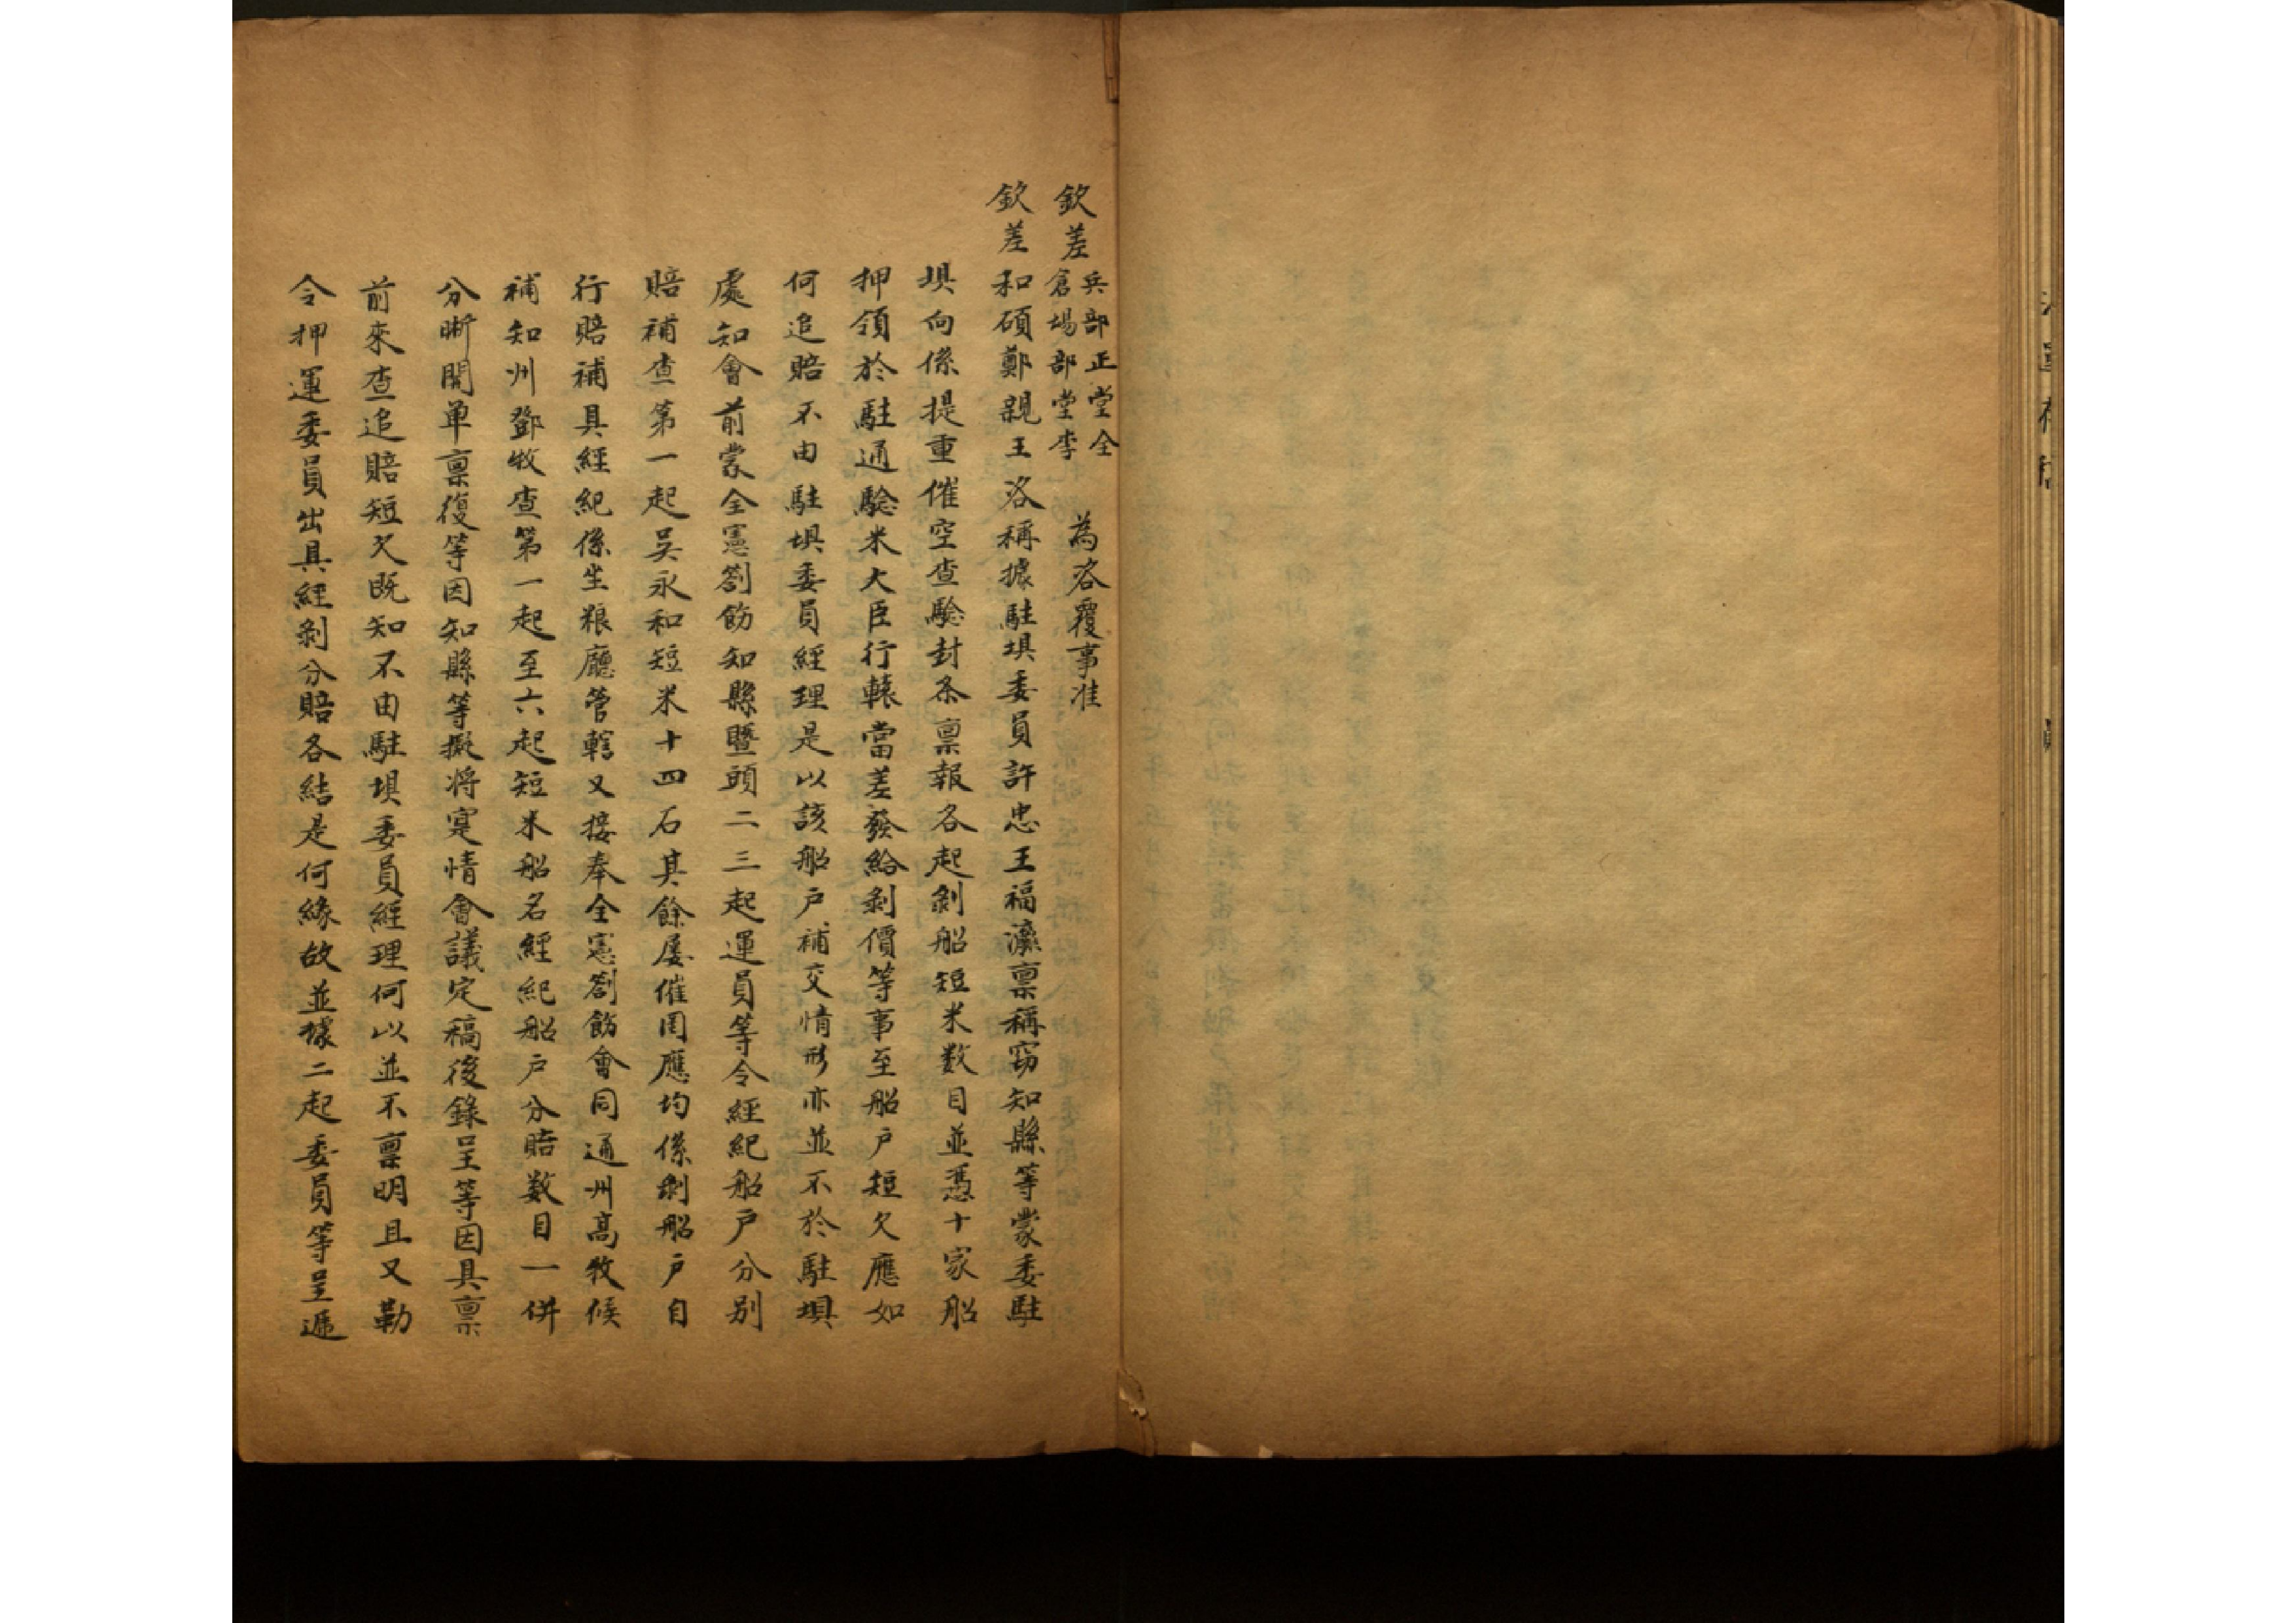 欽差兵部正堂全倉場部堂李 為咨覆事准
欽差和碩鄭親王咨稱據駐垻委員許忠王福瀛禀稱竊知縣等蒙委駐
垻向係提重催空查驗封条禀報各起剝船短米数目並慿十家船
押領於駐通驗米大臣行轅當差發給剝價等事至船户短欠應如
何追賠不由駐垻委員經理是以該船户補交情形亦並不於駐垻
處知會前蒙全憲劄飭知縣曁頭二三起運員等令經紀船户分别
賠補查第一起吴永和短米十四石其餘屡催罔應均係剝船户自
行賠補具經紀係坐粮廳管轄又接奉全憲劄飭會同通州高牧候
補知州鄧牧查第一起至六起短米船名經紀船户分賠数目一併
分晰開单禀復等因知縣等擬将寔情會議定稿後錄呈等因具禀
前來查追賠短欠既知不由駐垻委員經理何以並不禀明且又勒
令押運委員出具經剝分賠各結是何緣故並據二起委員等呈遞